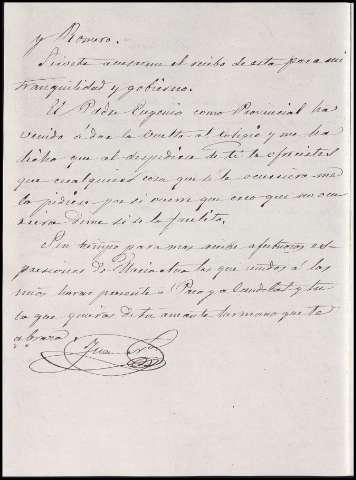 y Romero.
Sirvete acusarme el recibo de esta para mi
tranquilidad y gobierno.
El Padre Eugenio como Provincial ha
venido a dar la vuelta al Colegio y me ha
dicho que al despedirse de ti le ofrecistes
que cualquiera cosa que se le ocurriera me
la pidiese por si viene que creo que no ocu-
rrira dime si se la facilito.
Sin tiempo para mas recibe afectuosas es-
presiones de las que unidos á las
mias haras presente a Paca y Candelas y tu
lo que quieras de tu amante hermano que te
abraza
Juan